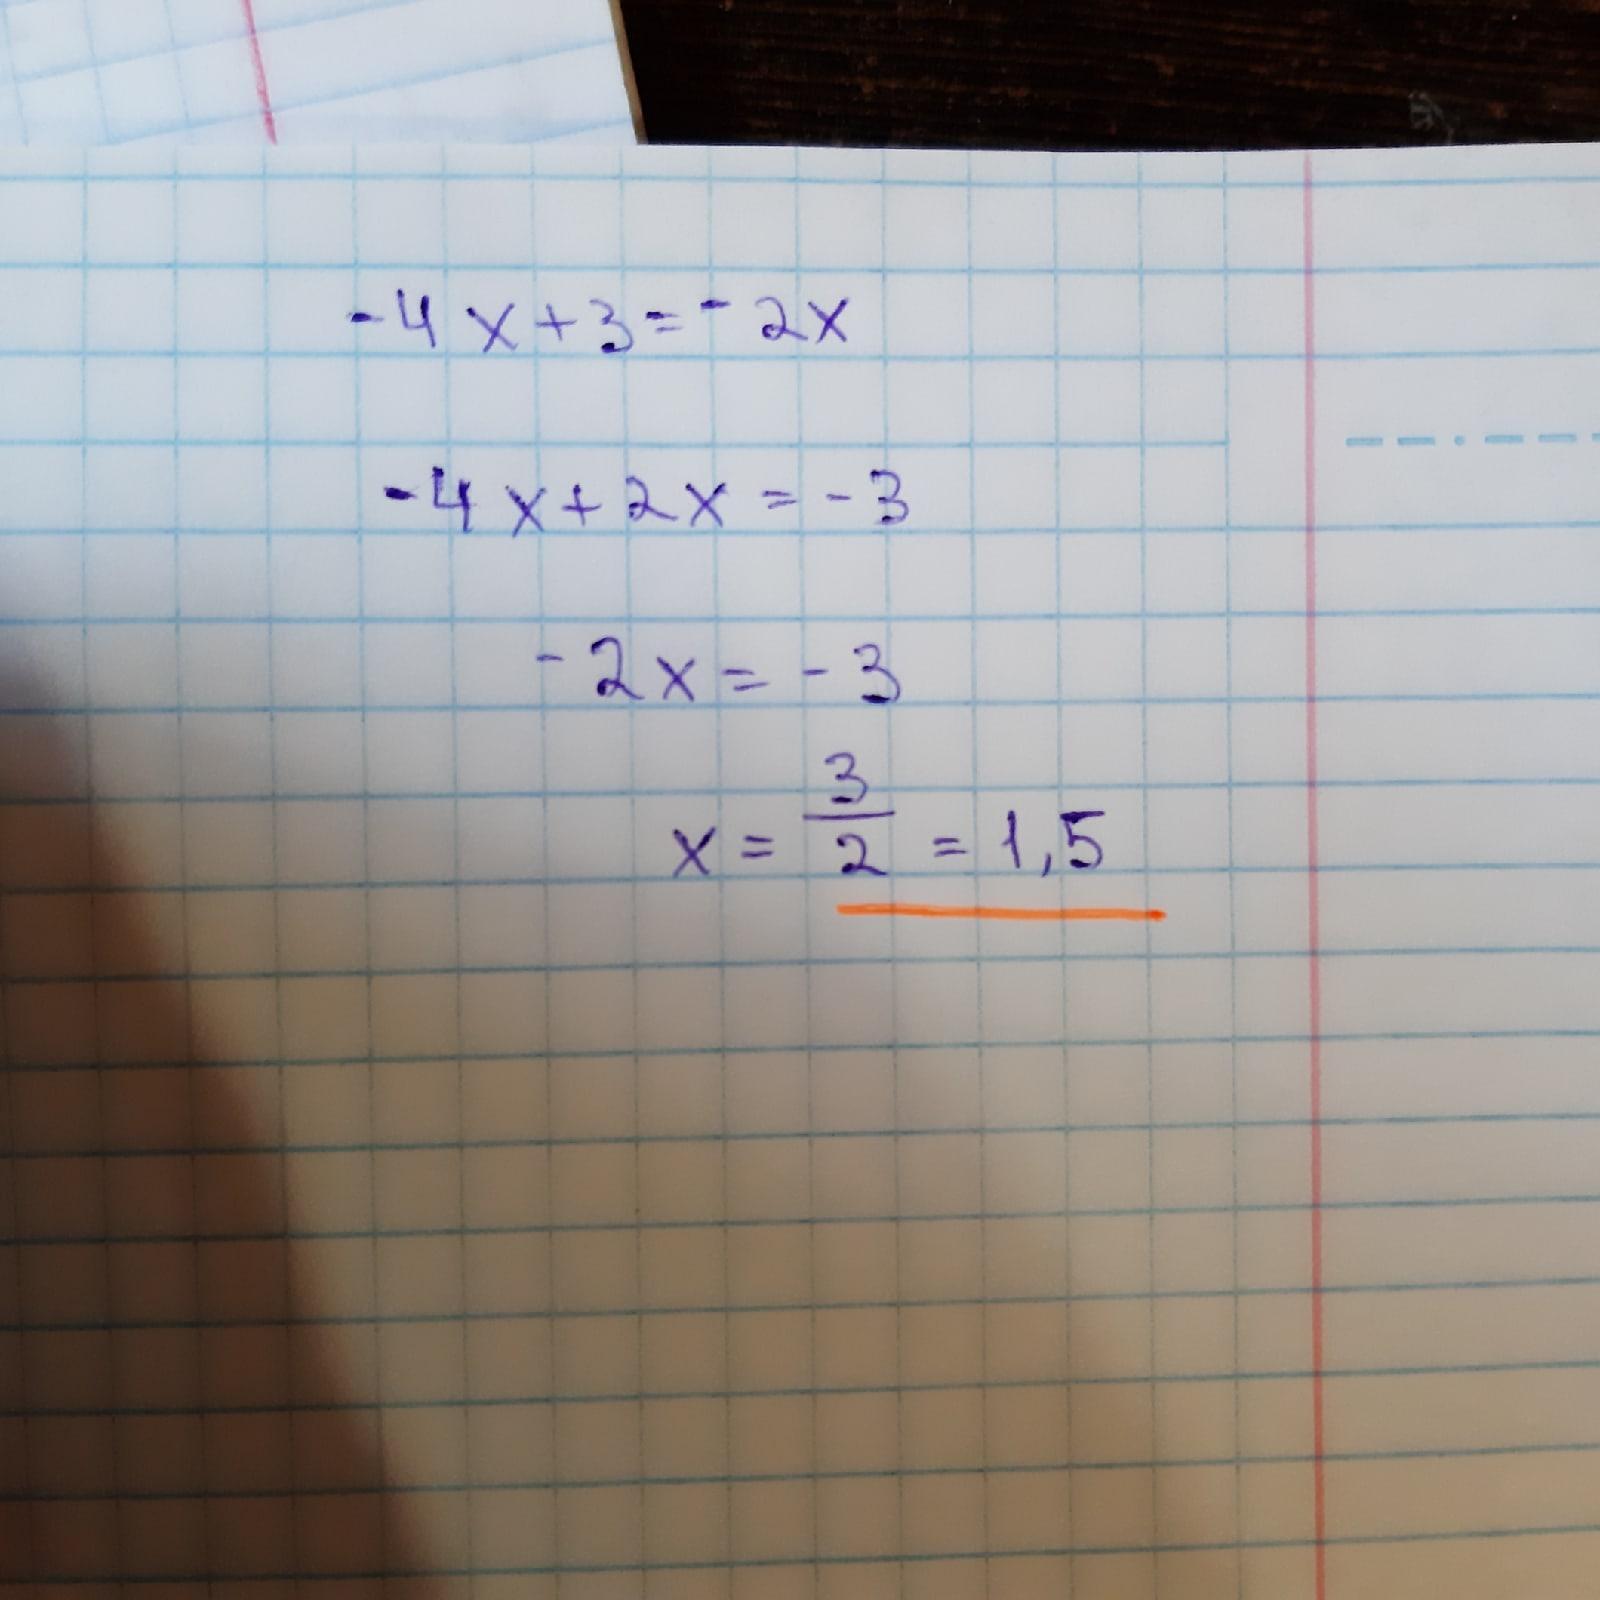 -4x+3=-2x
-4x+2x=-3
-2x=-3
x=3/2=1,5